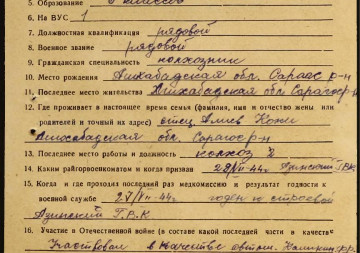 5. Образование
6. На ВУС 1
7. Должностная квалификация рядовой
8. Военное звание рядовой
9. Гражданская специальность колхозник
10. Место рождения Ашхабадская обл. Сарагс р-н
11. Последнее место жительства Ашхабадская обл. Сарагс р-н
12. Где проживает в настоящее время семья (фамилия, имя и отчество жены или
родителей и точный их адрес) отец Алиев
Ашхабадская обл. Сарагс р-н
13. Последнее место работы и должность колхоз
14. Каким райгорвоенкоматом и когда призван 44г.
15. Когда и где проходил последний раз медкомиссию и результат годности к
военной службе 44г. годен к строевой
Г.В.К
16. Участие в Отечественной войне (в составе какой последней части и качестве
Участвовал в качестве